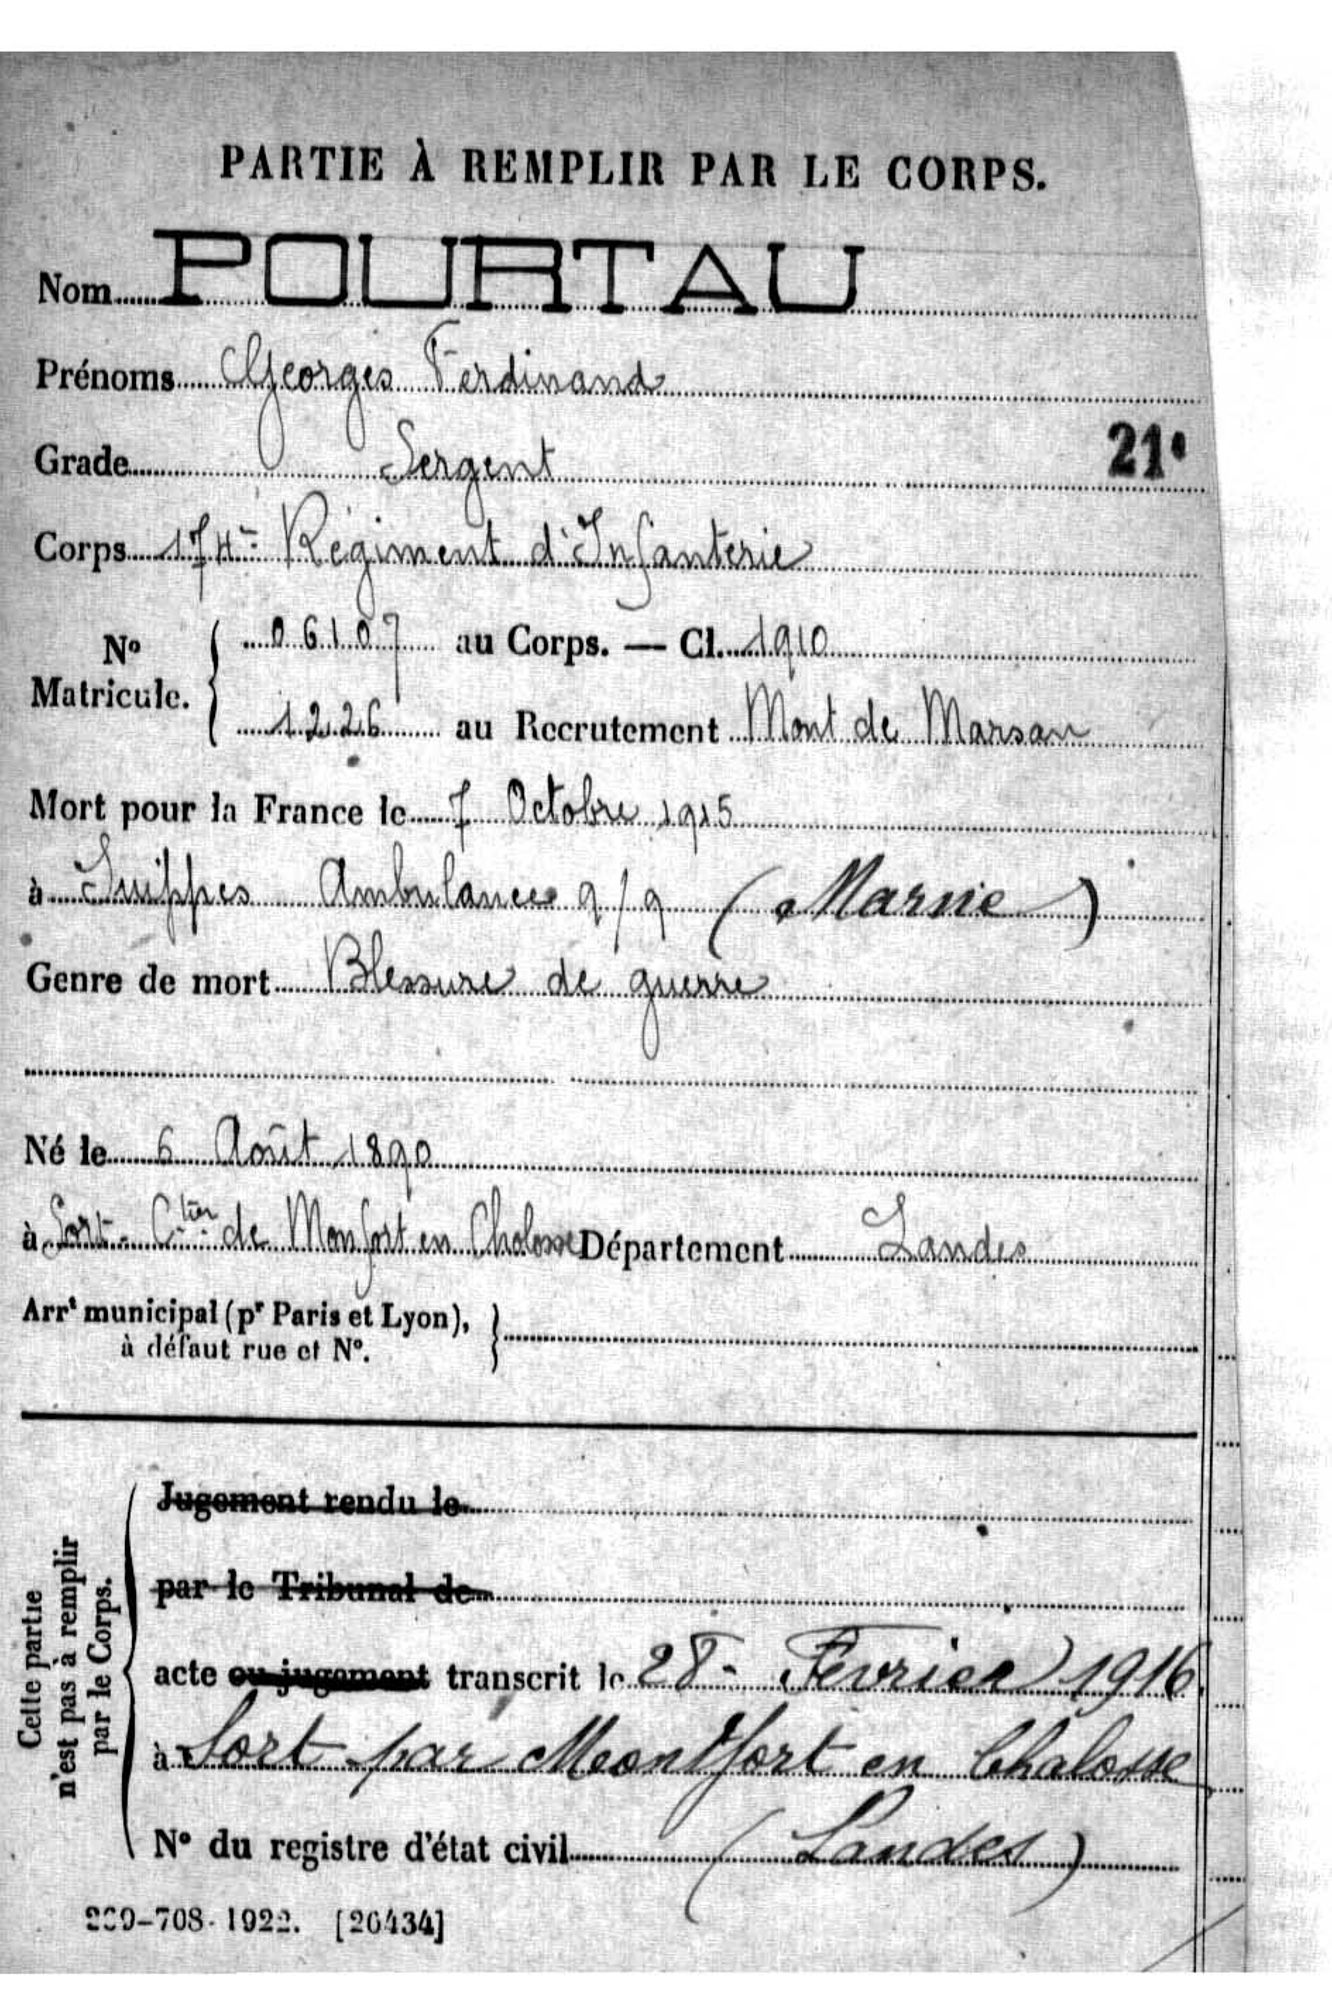 PARTIE À REMPLIR PAR LE CORPS.
Nom POURTAU
Prénoms Georges Ferdinand
Grade Sergent
21e
Corps 174e Régiment d'Infanterie
No Matricule. { 06107 au Corps. — Cl. 1910
1226 au Recrutement Mont de Marsan
Mort pour la France le 7 Octobre 1915
à Suippes Ambulance 9/9 (Marne)
Genre de mort Blessure de guerre
Né le 6 Août 1890
à Sort - Cton de Monfort en Chalosse Département Landes
Arrt municipal (pr Paris et Lyon), }
à défaut rue et No.
Cette partie
n'est pas à remplir
par le Corps.
Jugement rendu le
par le Tribunal de
acte ou jugement transcrit le 28 Février 1916
à Sort par Montfort en Chalosse
No du registre d'état civil (Landes)
-708-1922. [26434]